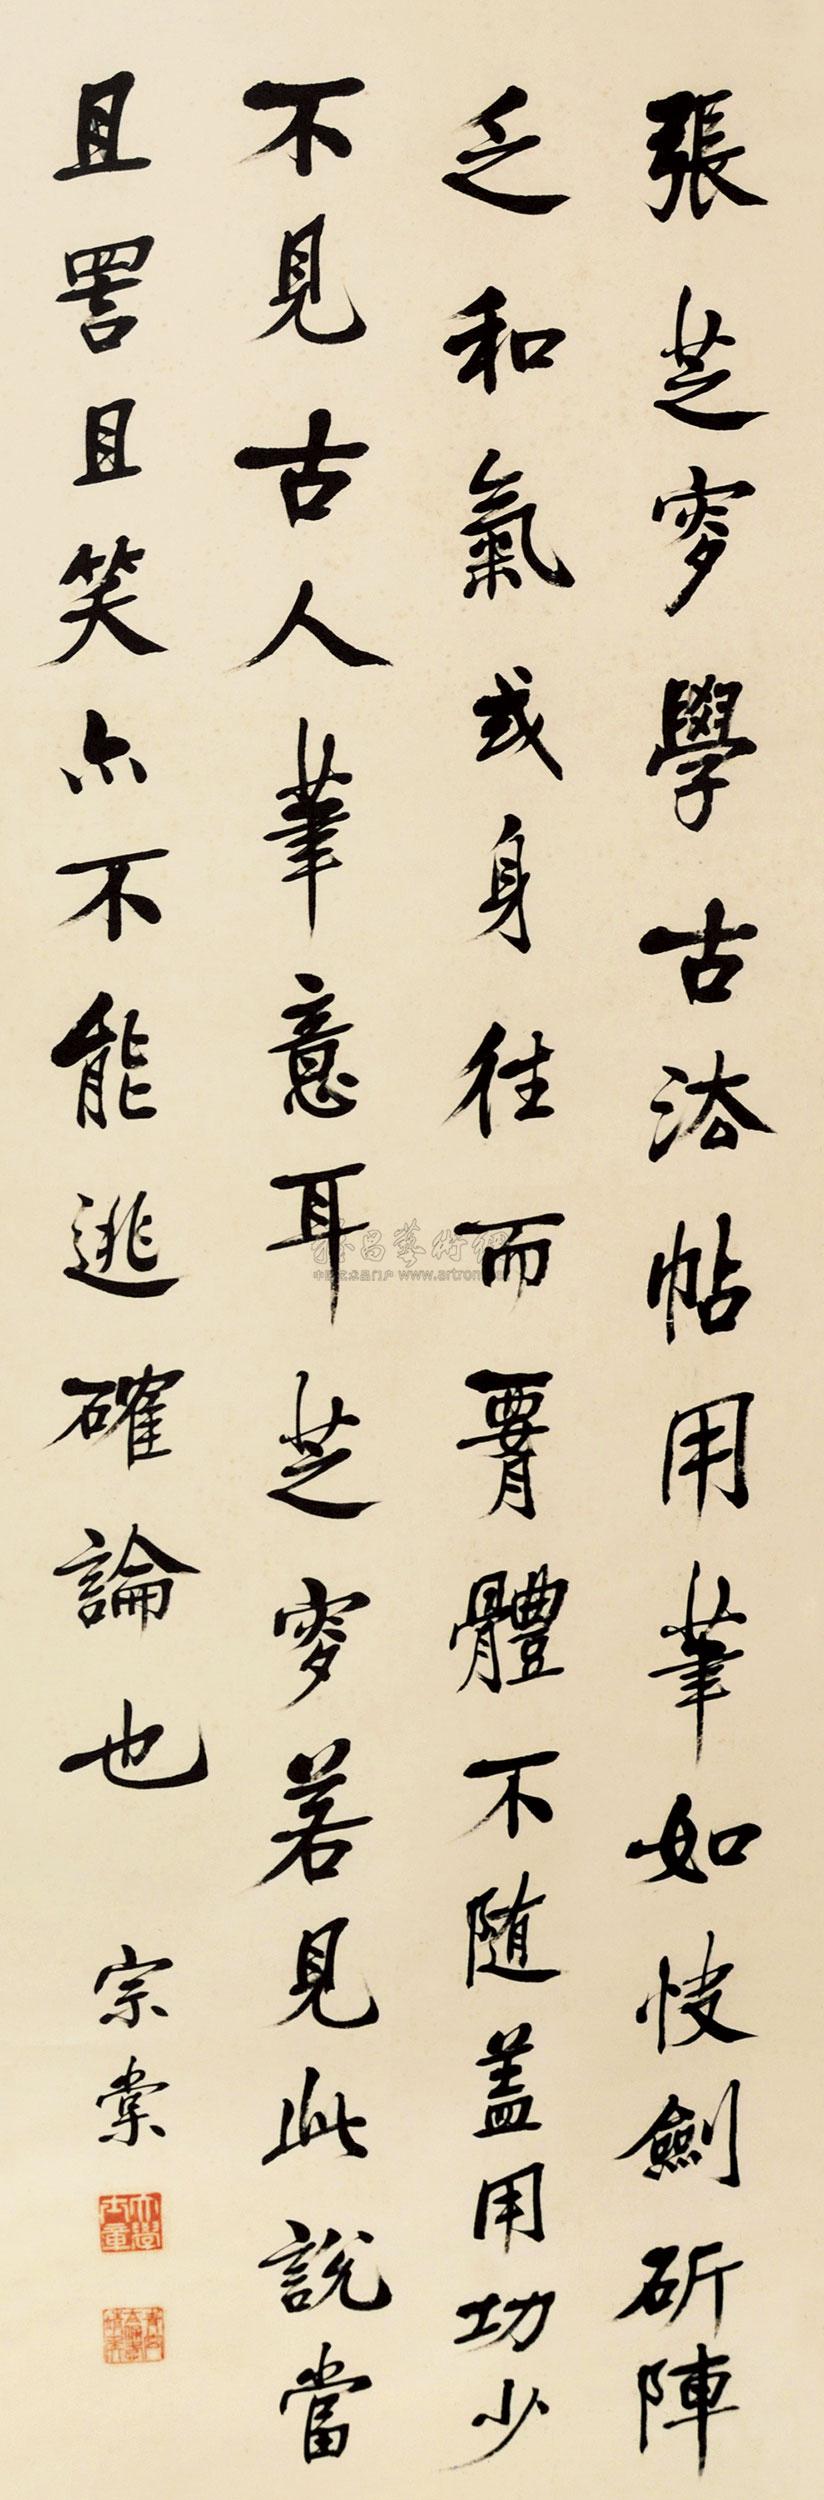 張芝窗學古法帖用筆如快劍斫陣
乏和氣或身往而臂體不隨蓋用功少
不見古人筆意耳芝窗若見此說當
且詈且笑亦不能逃確論也
宗棠
大學士章
www.artron.